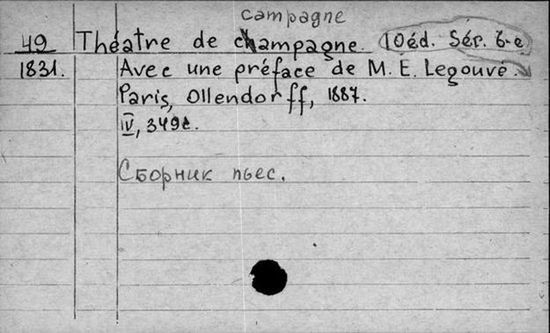 campagne
49 Théatre de champagne. 10 éd. Sér. 6-e
1831. Avec une préface de M. E. Legouvé.
Paris, Ollendorff, 1887.
IV, 349c.
Сборник пьес.